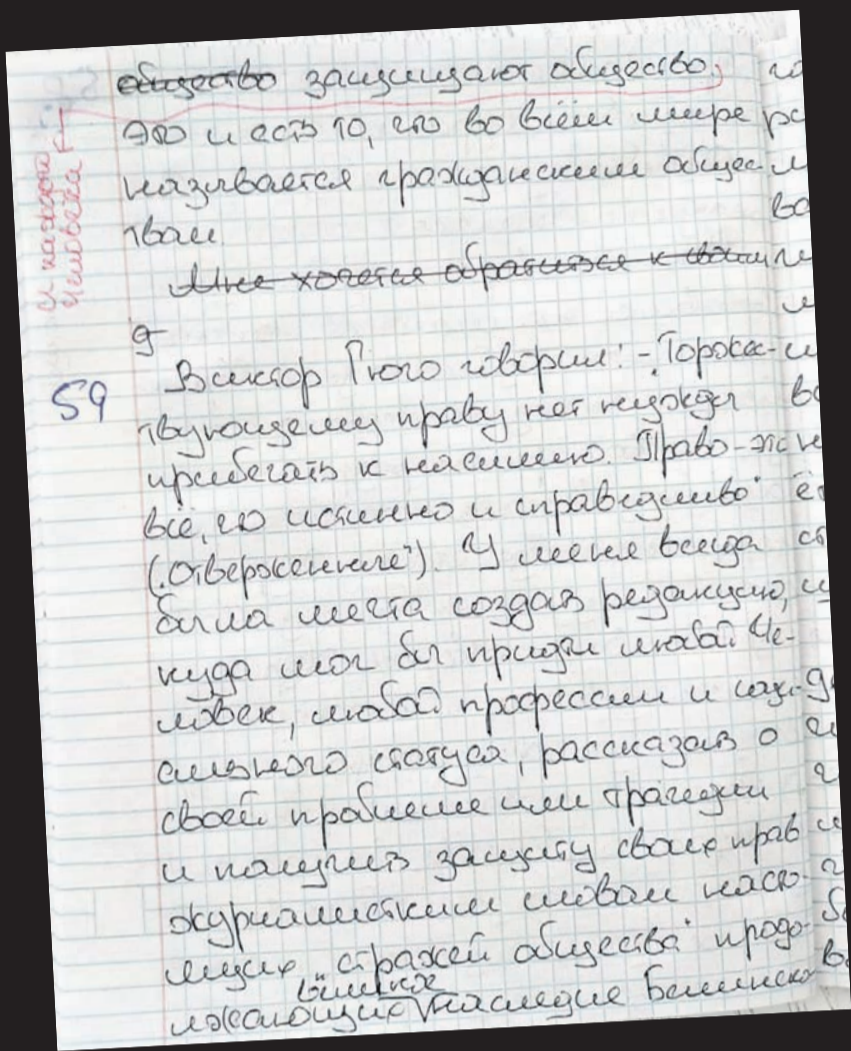 общество защищают общество,
и каждого
человека
это и есть то, что во всём мире
называется гражданским общес-
твом
Мне хочется обратиться к своим
9
59
Виктор Гюго говорил: - "Торжес-
твующему праву нет нужды
прибегать к насилию. Право - это
всё, что истинно и справедливо"
("Отверженные"). У меня всегда
была мечта создать редакцию,
куда мог бы придти любой че-
ловек, любой профессии и соци-
ального статуса, рассказать о
своей проблеме или трагедии
и получить защиту своих прав
журналистким словом насто-
ящих "стражей общества" продо-
великое
лжающих наследие Белинско